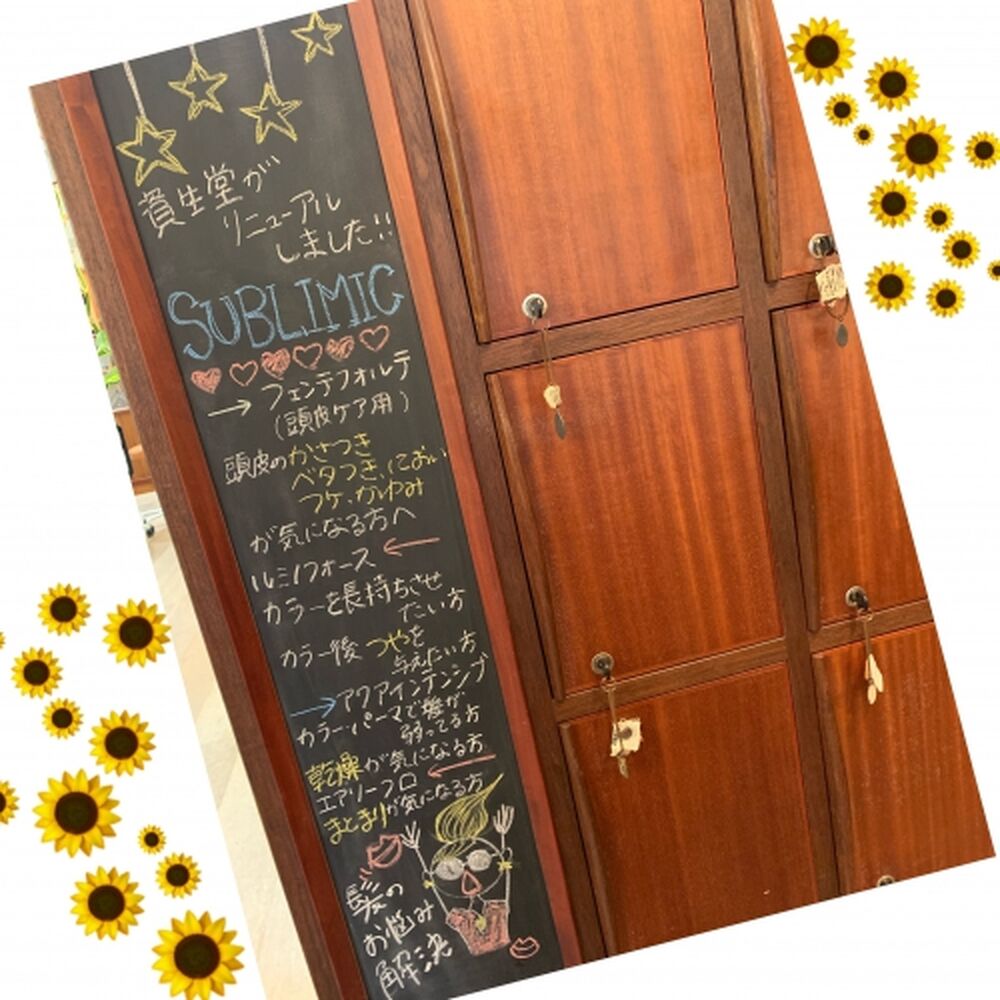 資生堂が
リニューアル
しました!!
SUBLIMIC
フェンテフォルテ
(頭皮ケア用)
頭皮のかさつき
ベタつき、におい
フケ、かゆみ
が気になる方へ
ルミノフォース
カラーを長持ちさせ
たい方
カラー後つやを
与えたい方
アクアインテンシブ
カラー・パーマで髪が
弱ってる方
乾燥が気になる方
エアリーフロー
まとまりが気になる方
髪の
お悩み
解決